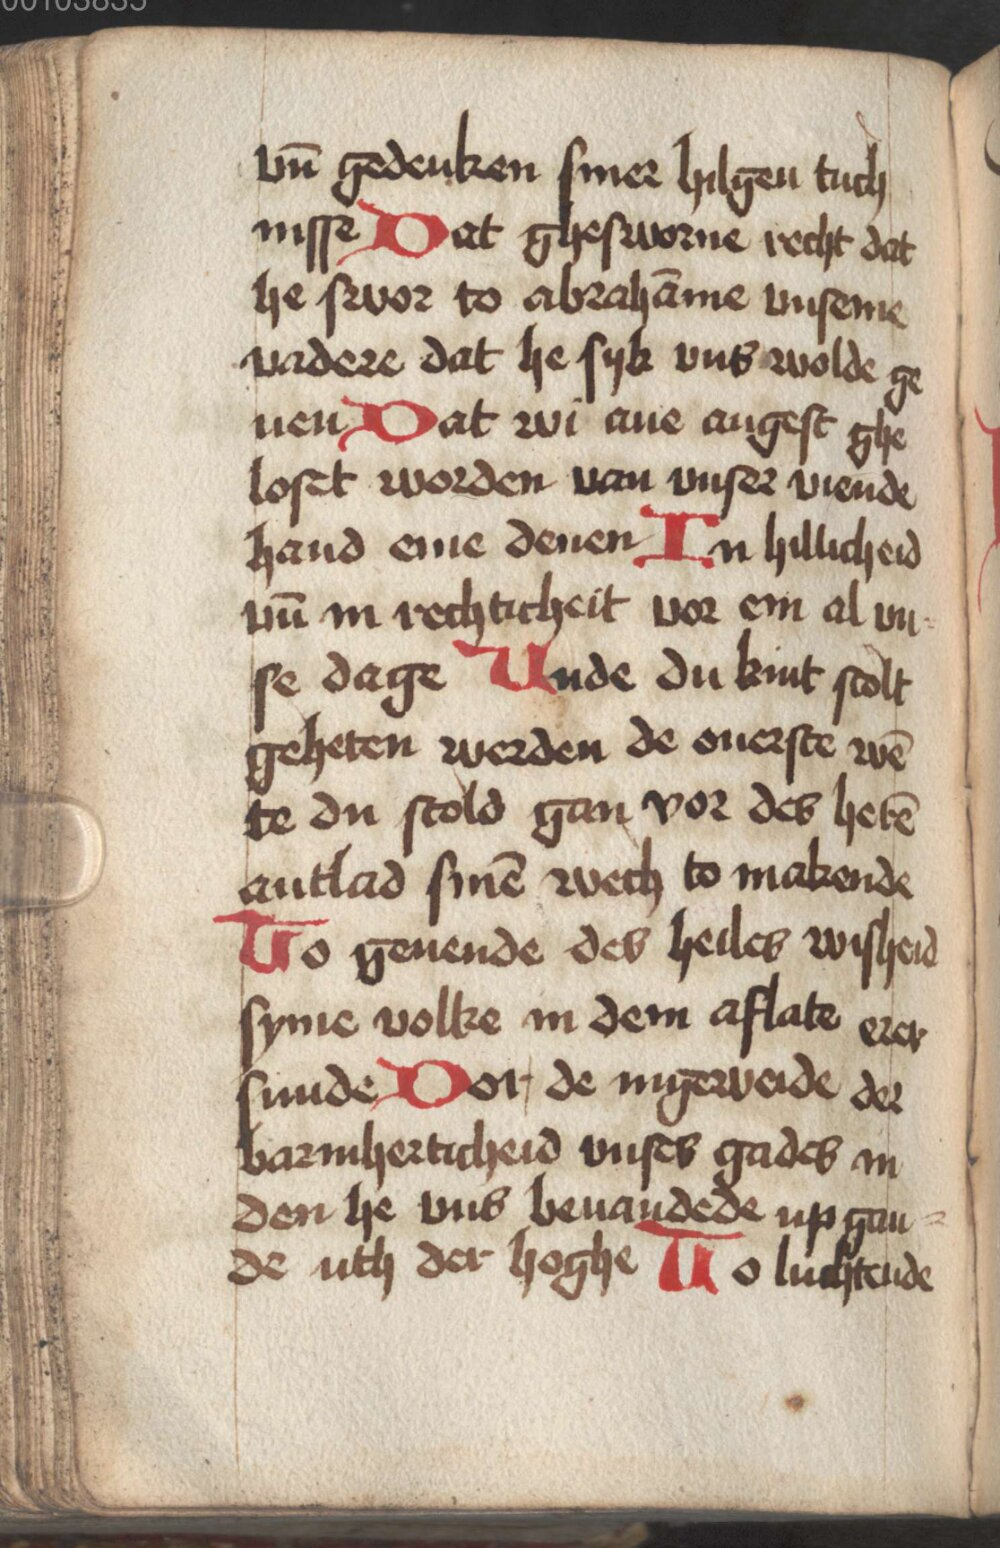 00103835
vn̄ gedenken siner hilgen tuch
nisse Dat ghesworne recht dat
he swor to abrahāme vnseme
vadere dat he syk vns wolde ge
uen Dat wi ane angest ghe
loset worden van vnser viende
hand eme denen In hillicheid
vn̄ in rechticheit vor em al vn-
se dage Unde du kint scolt
geheten werden de ouerste wē
te du scold gan vor des herē
antlad sinē wech to makende
To geuende des heiles wisheid
syme volke in dem aflate erer
sunde Dor de ingeweide der
barmherticheid vnses gades in
den he vns beuandede up gan-
de uth der hoghe To luchtende